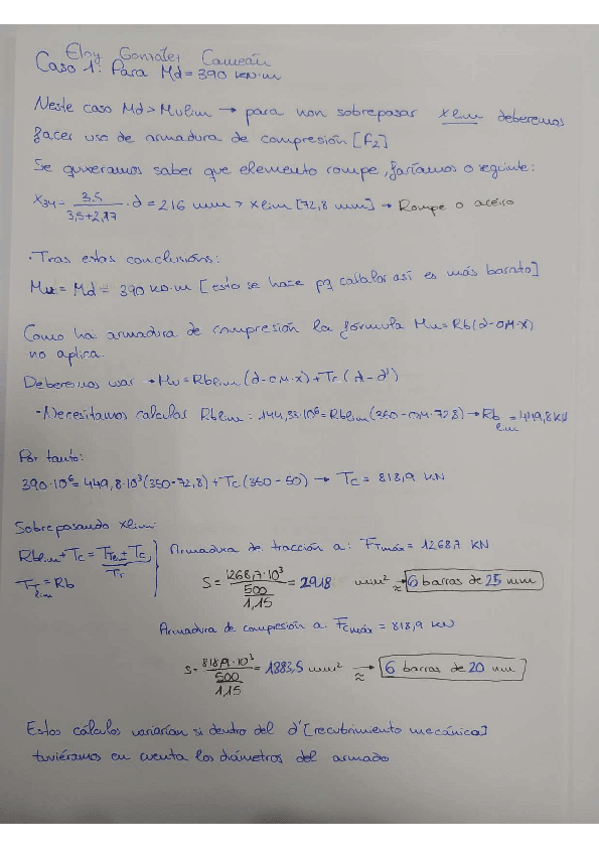 Eloy González Cameán
Caso 1: Para Md = 390 kN·m
Neste caso Md > Mulim → para non sobrepasar xlim deberemos
facer uso de armadura de compresión [F2]
Se quxeramos saber que elemento rompe, faríamos o seguinte:
x34 = 3,5 / 3,5+2,17 · d = 216 mm > xlim [72,8 mm] → Rompe o aceiro
· Tras estas conclusións:
Mu = Md = 390 kN·m [esto se hace pq calcular así es más barato]
Como ha armadura de compresión la fórmula Mu = Rb(d-0,4·x)
no aplica.
Deberemos usar → Mu = Rblim (d-0,4·x) + Tc (d-d')
- Necesitamos calcular Rblim : 144,33·10⁶ = Rblim (350-0,4·72,8) → Rblim = 449,8 kN
Por tanto:
390·10⁶ = 449,8·10³ (350-72,8) + Tc (350-50) → Tc = 818,9 kN
Sobrepasando xlim:
Rblim + Tc = Ttlim + Tc / Tr
Tt lim = Rb
Armadura de tracción a: FTmáx = 1268,7 kN
S = 1268,7·10³ / 500 / 1,15 = 2918 mm² ≈→ 6 barras de 25 mm
Armadura de compresión a: Fcmáx = 818,9 kN
S = 818,9·10³ / 500 / 1,15 = 1883,5 mm² →≈ 6 barras de 20 mm
Estos cálculos variarían si dentro del d' [recubrimiento mecánico]
tuviéramos en cuenta los diámetros del armado